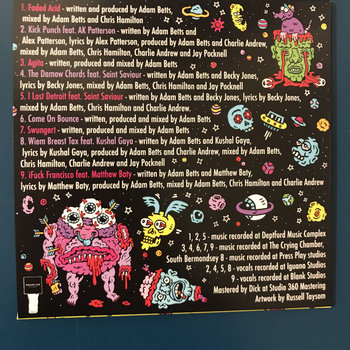 1. Faded Acid - written and produced by Adam Betts,
mixed by Adam Betts and Chris Hamilton
2. Kick Punch feat. AK Patterson - written by Adam Betts and
Alex Patterson, lyrics by Alex Patterson, produced by Adam Betts and Charlie Andrew,
mixed by Adam Betts, Chris Hamilton, Charlie Andrew and Jay Pocknell
3. Agita - written, produced and mixed by Adam Betts
4. The Damow Chords feat. Saint Saviour - written by Adam Betts and Becky Jones,
lyrics by Becky Jones, mixed by Adam Betts, Chris Hamilton and Jay Pocknell
5. I Lost Detroit feat. Saint Saviour - written by Adam Betts, lyrics by Becky Jones,
mixed by Adam Betts, Chris Hamilton and Charlie Andrew.
6. Come On Bounce - written, produced and mixed by Adam Betts
7. Swungert - written, produced and mixed by Adam Betts
8. Wiem Breast Tax feat. Kushal Gaya - written by Adam Betts and Kushal Gaya,
lyrics by Kushal Gaya, produced by Adam Betts and Charlie Andrew, mixed by Adam Betts,
Chris Hamilton, Charlie Andrew and Jay Pocknell
9. iFuck Francisco feat. Matthew Baty - written by Adam Betts and Matthew Baty,
lyrics by Matthew Baty, produced by Adam Betts, mixed by Adam Betts, Chris Hamilton and Charlie Andrew
1, 2, 5 - music recorded at Deptford Music Complex
3, 4, 6, 7, 9 - music recorded at The Crying Chamber,
South Bermondsey 8 - music recorded at Press Play studios
2, 4, 5, 8 - vocals recorded at Iguana Studios
9 - vocals recorded at Blank Studios
Mastered by Dick at Studio 360 Mastering
Artwork by Russell Taysom